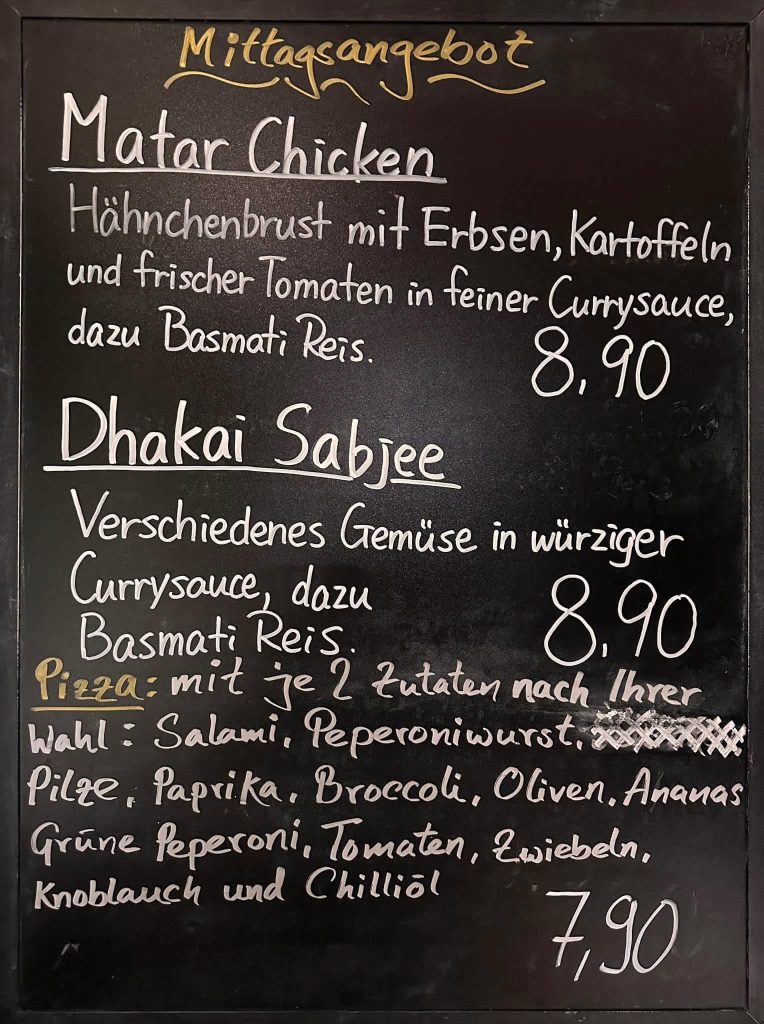 Mittagsangebot
Matar Chicken
Hähnchenbrust mit Erbsen, Kartoffeln
und frischer Tomaten in feiner Currysauce,
dazu Basmati Reis.
8,90
Dhakai Sabjee
Verschiedenes Gemüse in würziger
Currysauce, dazu
Basmati Reis.
8,90
Pizza: mit je 2 Zutaten nach Ihrer
Wahl: Salami, Peperoniwurst,
Pilze, Paprika, Broccoli, Oliven, Ananas
Grüne Peperoni, Tomaten, Zwiebeln,
Knoblauch und Chilliöl
7,90